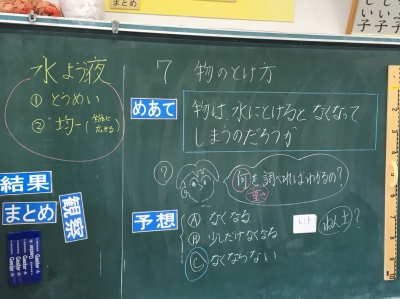 まとめ
水よう液
① とうめい
② 均一(全体に広がる)
結果
まとめ
観察
7 物のとけ方
めあて
物は、水にとけると なくなって
しまうのだろうか
?
何を調べればわかるの?
重さ
予想
Ⓐ なくなる
Ⓑ 少しだけなくなる
Ⓒ なくならない
ねん土?